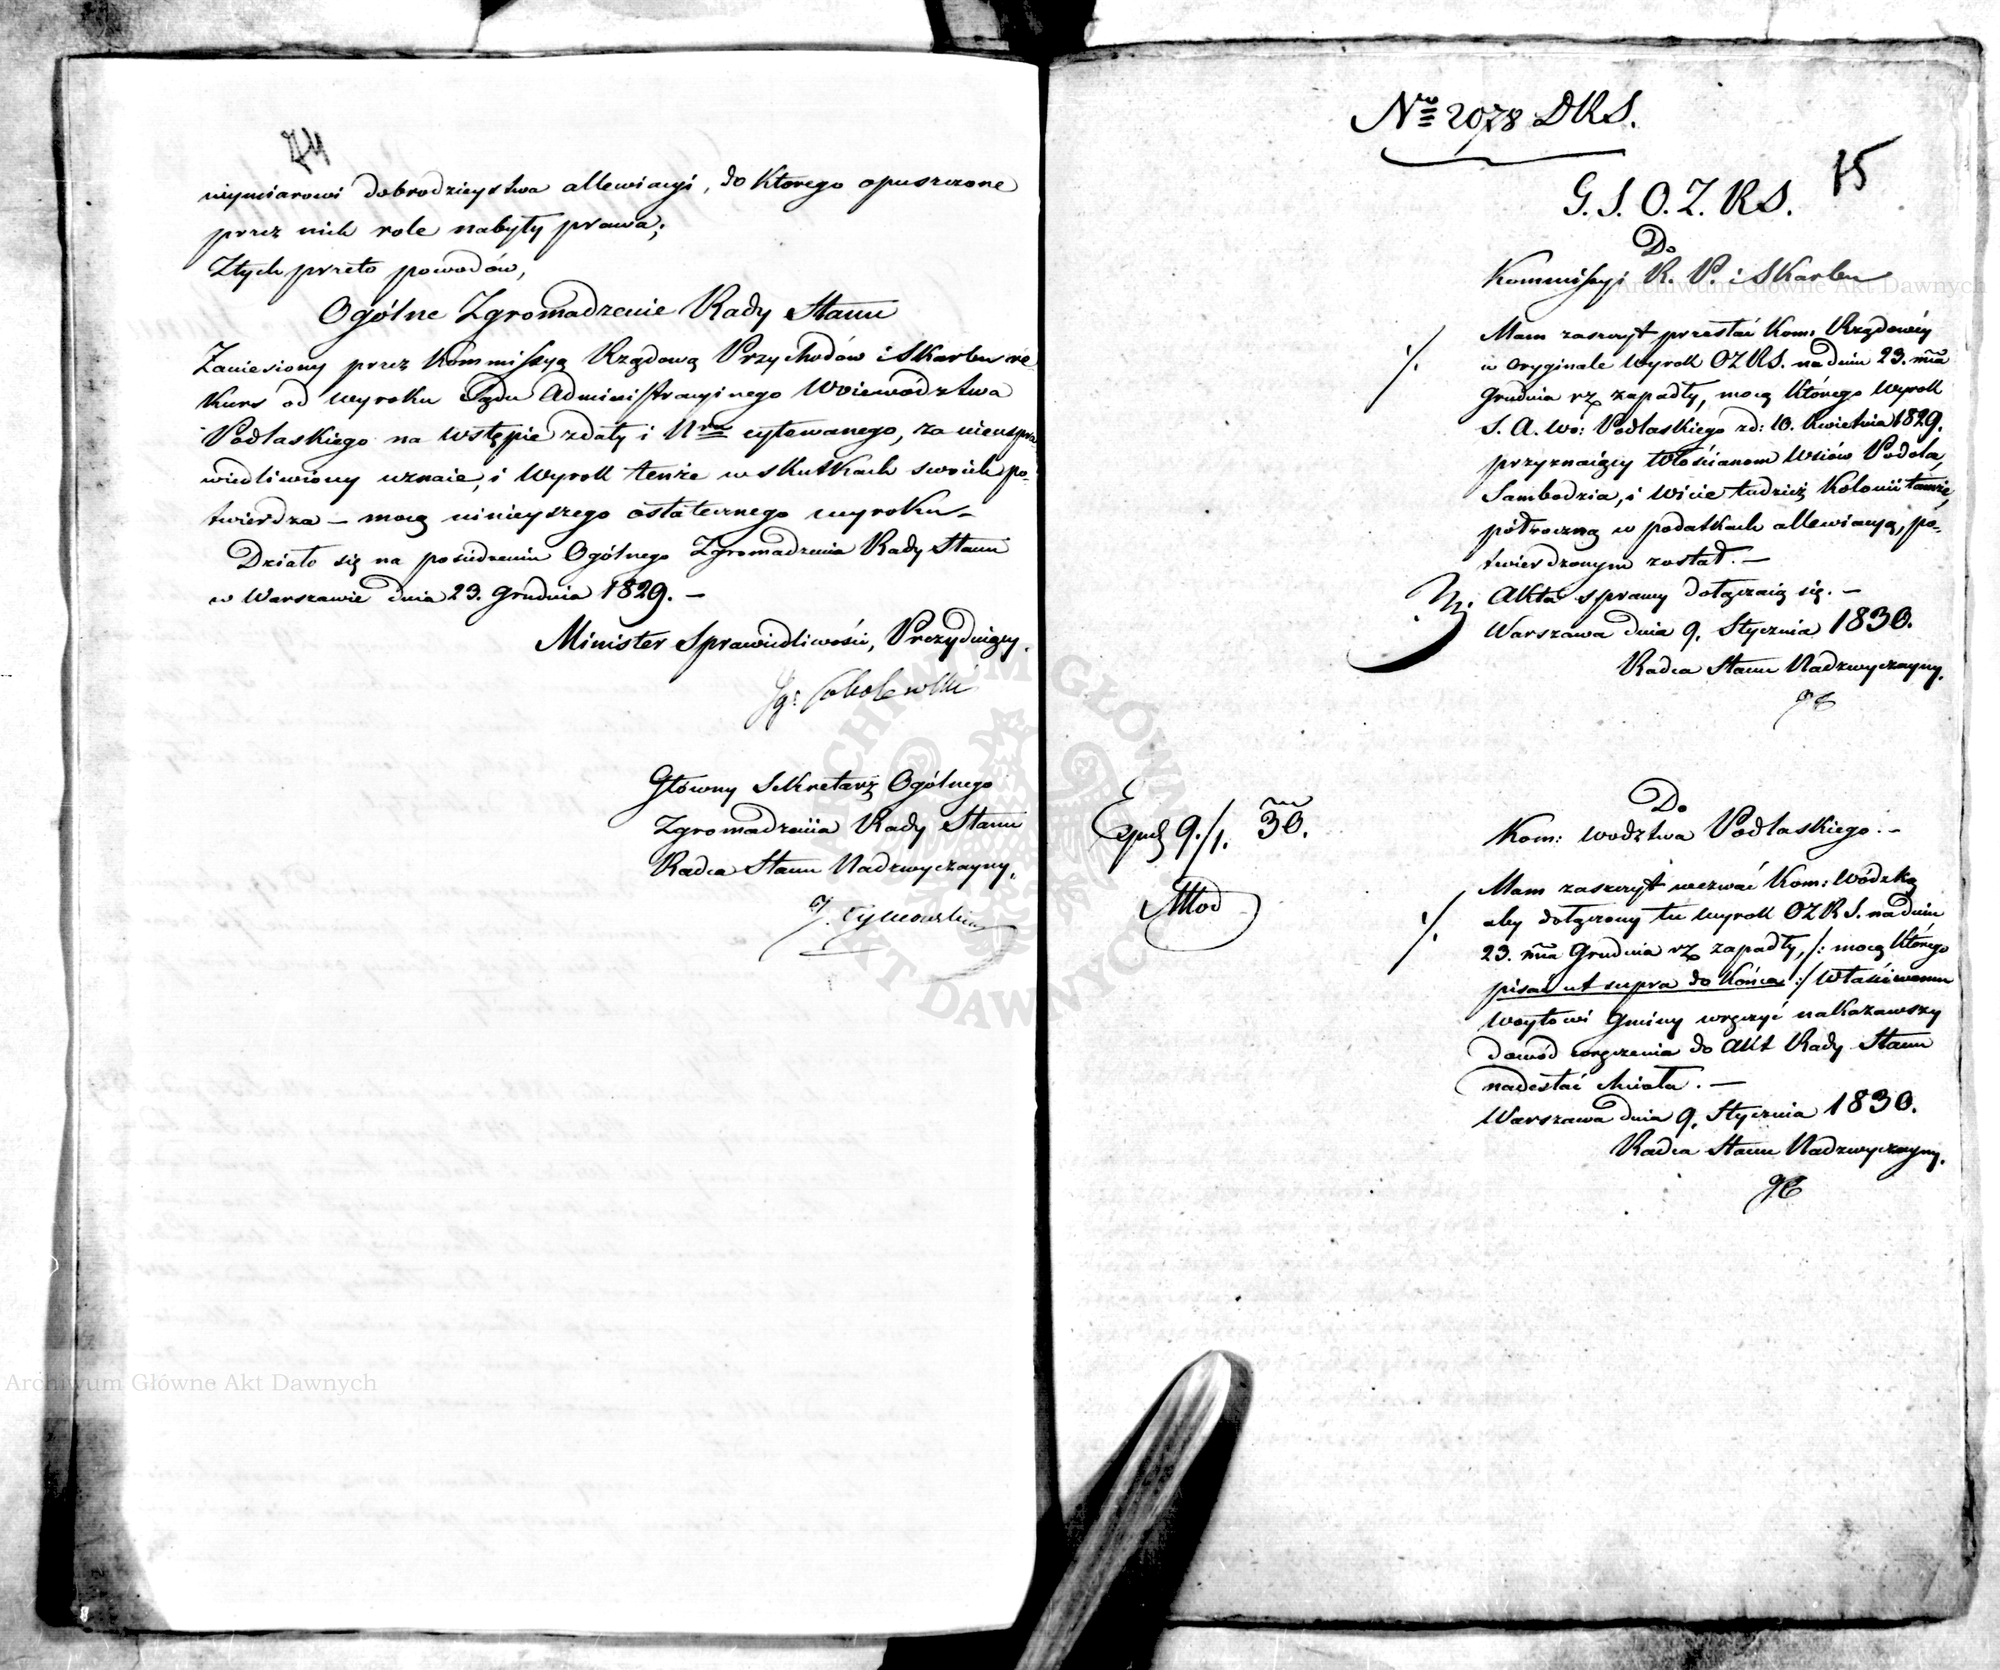 74
wymiarowi dobrodzieystwa allewiacyi, do którego opuszczone
przez nich role nabyły prawa;
Z tych przeto powodów,
Ogólne Zgromadzenie Rady Stanu
Zaniesiony przez Kommissyą Rządową Przychodów i Skarbu re-
kurs od wyroku Sądu Administracyinego Woiewództwa
Podlaskiego na wstępie z daty i Nru cytowanego, za nieuspra-
wiedliwiony uznaie, i wyrok tenże w skutkach swoich po-
twierdza – mocą ninieyszego ostatecznego wyroku –
Działo się na posiedzeniu Ogólnego Zgromadzenia Rady Stanu
w Warszawie dnia 23. Grudnia 1829. –
Minister Sprawiedliwości, Prezyduiący.
Sobolewski
Główny Sekretarz Ogólnego
Zgromadzenia Rady Stanu
Radca Stanu Nadzwyczayny,
J. Tymowski
No 2078 DRS.
75
G. S. O. Z. RS.
Do
Kommissyi R. P. i Skarbu
Mam zaszczyt przesłać Kom: Rządowéy
w oryginale wyrok OZRS. na dniu 23. mca
Grudnia rz zapadły, mocą którego wyrok
S. A. Wo: Podlaskiego zd: 10. Kwietnia 1829.
przyznaiący Włościanom Wsiów Podola,
Sambodzia, i Wicie tudzież Kolonii tamże,
półroczną w podatkach allewiacyą, po-
twierdzonym został. –
Akta sprawy dołączaią się. –
Warszawa dnia 9. Stycznia 1830.
Radca Stanu Nadzwyczayny.
Do
Kom: Wodztwa Podlaskiego. –
Exped 9./1. 30.
Mam zaszczyt wezwać Kom: Wódzką
aby dołączony tu wyrok OZRS. na dniu
23. mca Grudnia rz zapadły, /: mocą którego
pisać ut supra do końca :/ Właściwemu
Woytowi Gminy wręczyć nakazawszy
dowód wręczenia do Akt Rady Stanu
nadesłać chciała. –
Warszawa dnia 9. Stycznia 1830.
Radca Stanu Nadzwyczayny.
Archiwum Główne Akt Dawnych
Archiwum Główne Akt Dawnych
ARCHIWUM GŁÓWNE AKT DAWNYCH